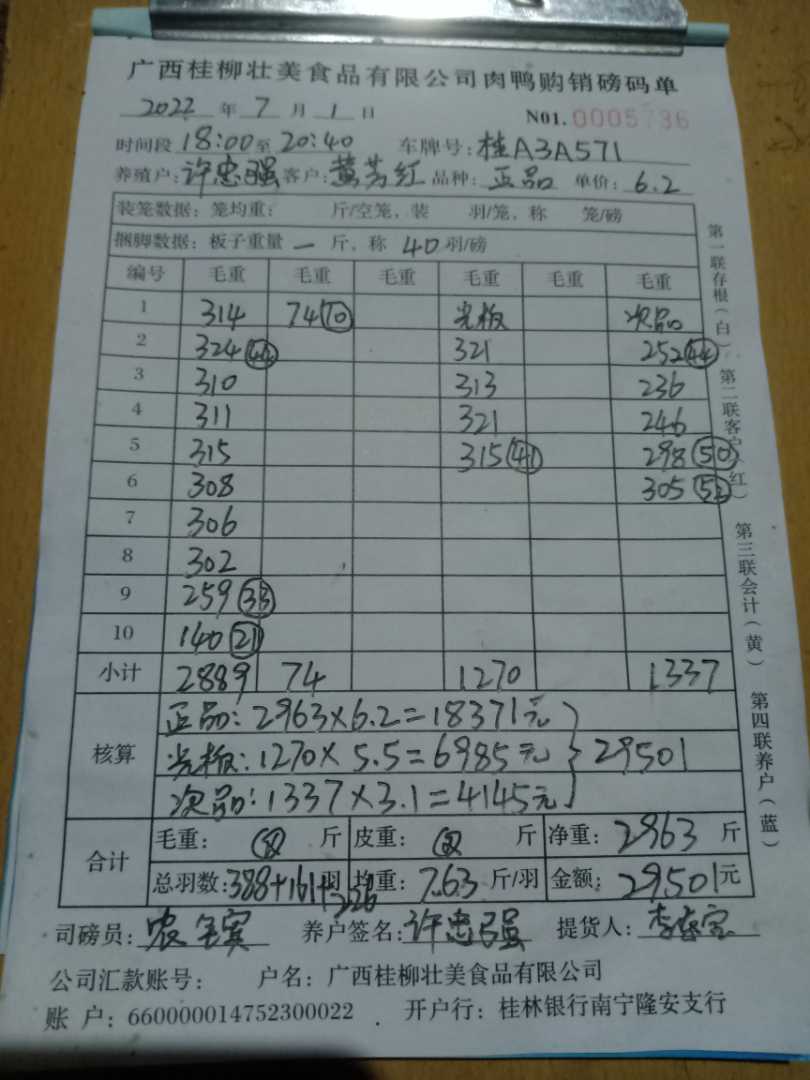 广西桂柳壮美食品有限公司肉鸭购销磅码单
2022 年 7 月 1 日 N01. 0005736
时间段 18:00 至 20:40 车牌号: 桂A3A571
养殖户: 许忠强 客户: 黄芳红 品种: 正品 单价: 6.2
装笼数据: 笼均重: 斤/空笼, 装 羽/笼, 称 笼/磅
捆脚数据: 板子重量 一 斤, 称 40 羽/磅
编号 毛重 毛重 毛重 毛重 毛重 毛重
1 314 74 (10) 光板 次品
2 324 (42) 321 252 (44)
3 310 313 236
4 311 321 246
5 315 315 (41) 298 (50)
6 308 305 (52)
7 306
8 302
9 259 (33)
10 140 (21)
小计 2889 74 1270 1337
核算
正品: 2963×6.2=18371元
光板: 1270×5.5=6985元 } 29501
次品: 1337×3.1=4145元
合计
毛重: 斤 皮重: 斤 净重: 2963 斤
总羽数: 388+161+226 羽 均重: 7.63 斤/羽 金额: 29501 元
司磅员: 农 宾 养户签名: 许忠强 提货人: 李
公司汇款账号: 户名: 广西桂柳壮美食品有限公司
账 户: 660000014752300022 . 开户行: 桂林银行南宁隆安支行
第一联存根(白)
第二联客户(红)
第三联会计(黄)
第四联养户(蓝)